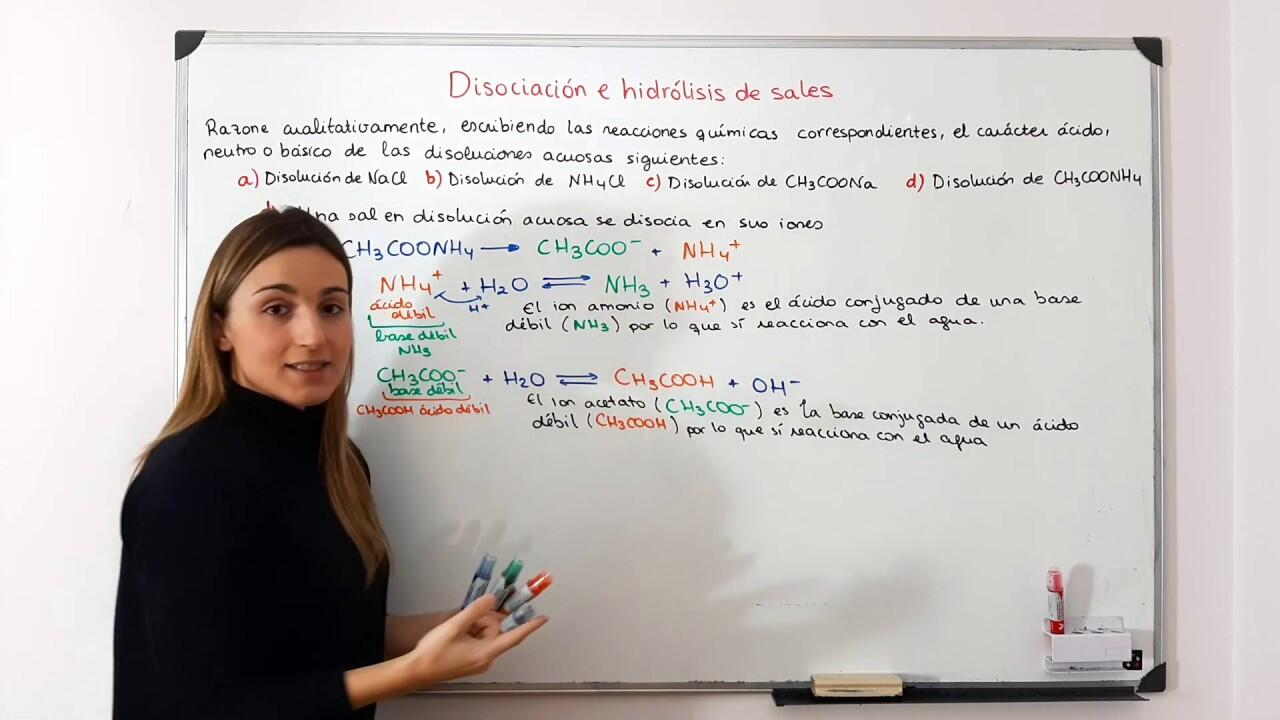 Disociación e hidrólisis de sales
Razone cualitativamente, escribiendo las reacciones químicas correspondientes, el carácter ácido,
neutro o básico de las disoluciones acuosas siguientes:
a) Disolución de NaCl b) Disolución de NH4Cl c) Disolución de CH3COONa d) Disolución de CH3COONH4
Una sal en disolución acuosa se disocia en sus iones
CH3COONH4 → CH3COO⁻ + NH4⁺
NH4⁺ + H2O ⇌ NH3 + H3O⁺
ácido
débil
H⁺
base débil
NH3
El ion amonio (NH4⁺) es el ácido conjugado de una base
débil (NH3) por lo que sí reacciona con el agua.
CH3COO⁻ + H2O ⇌ CH3COOH + OH⁻
base débil
CH3COOH ácido débil
El ion acetato (CH3COO⁻) es la base conjugada de un ácido
débil (CH3COOH) por lo que sí reacciona con el agua